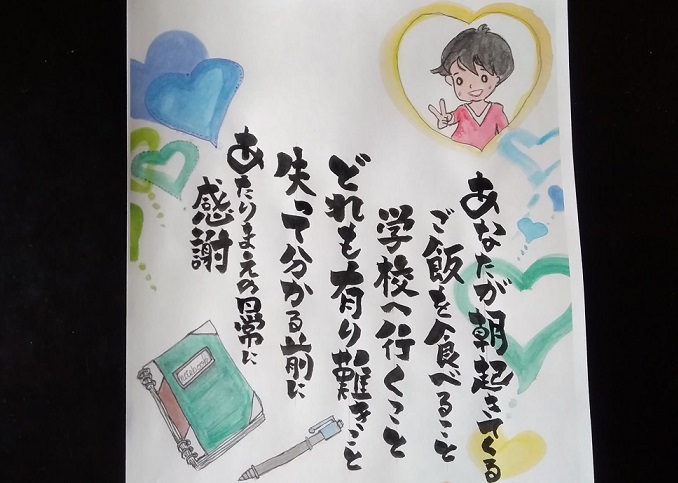 あなたが朝起きてくる
ご飯を食べること
学校へ行くこと
どれも有り難きこと
失って分かる前に
あたりまえの日常に
感謝
Notebook